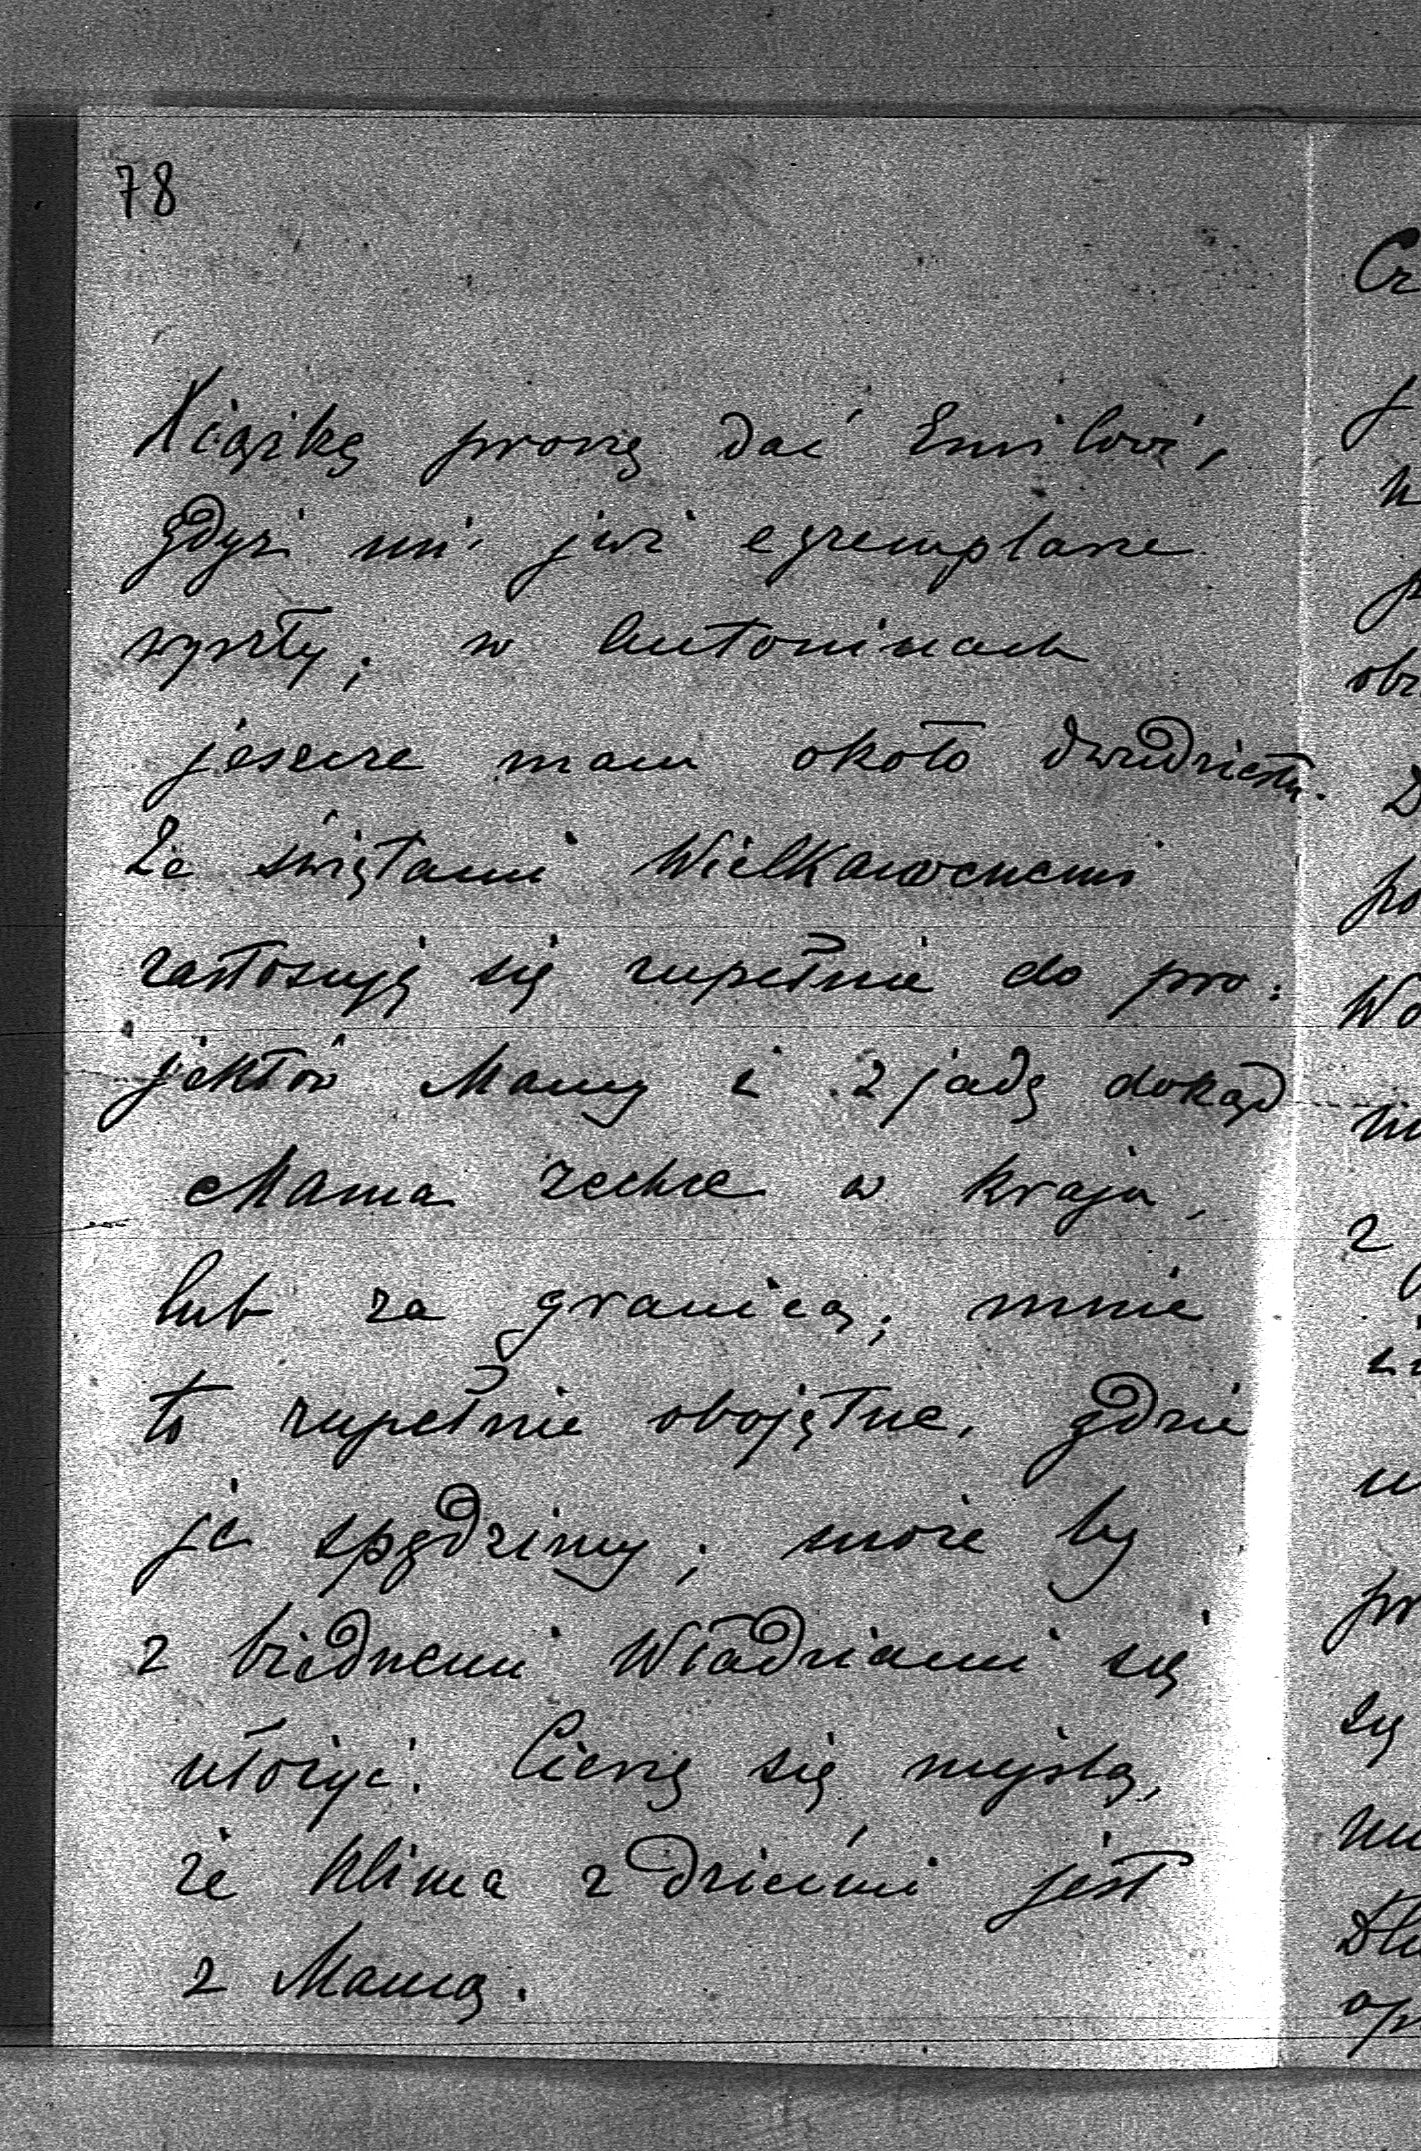 78
Xiążkę proszę dać Emilowi,
gdyż mi już egzemplarze
wyszły; w Antoninach
jeszcze mam około dwudziestu.
Ze świętami Wielkanocnemi
zastosuję się zupełnie do pro:
jektów Mamy i zjadę dokąd
Mama zechce w kraju,
lub za granicą; mnie
to zupełnie obojętne, gdzie
je spędzimy; może by
z biednemi Władziami się
ułożyć. Cieszę się myślą,
że Klima z dziećmi jest
z Mamą.